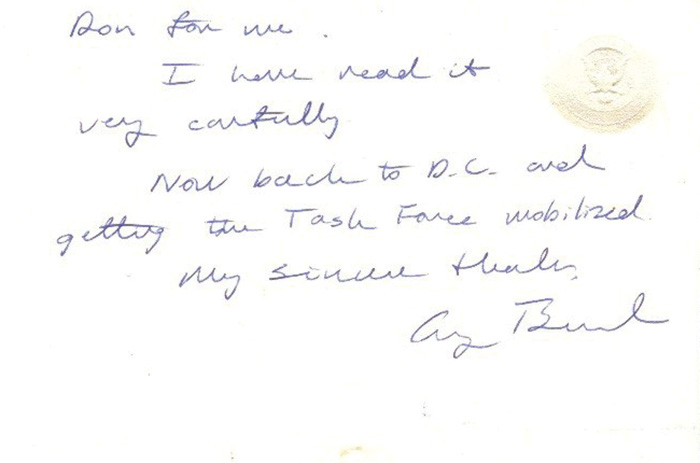 Don for me.
I have read it
very carefully
Now back to D.C. and
getting the Task Force mobilized.
My sincere thanks,
Bush